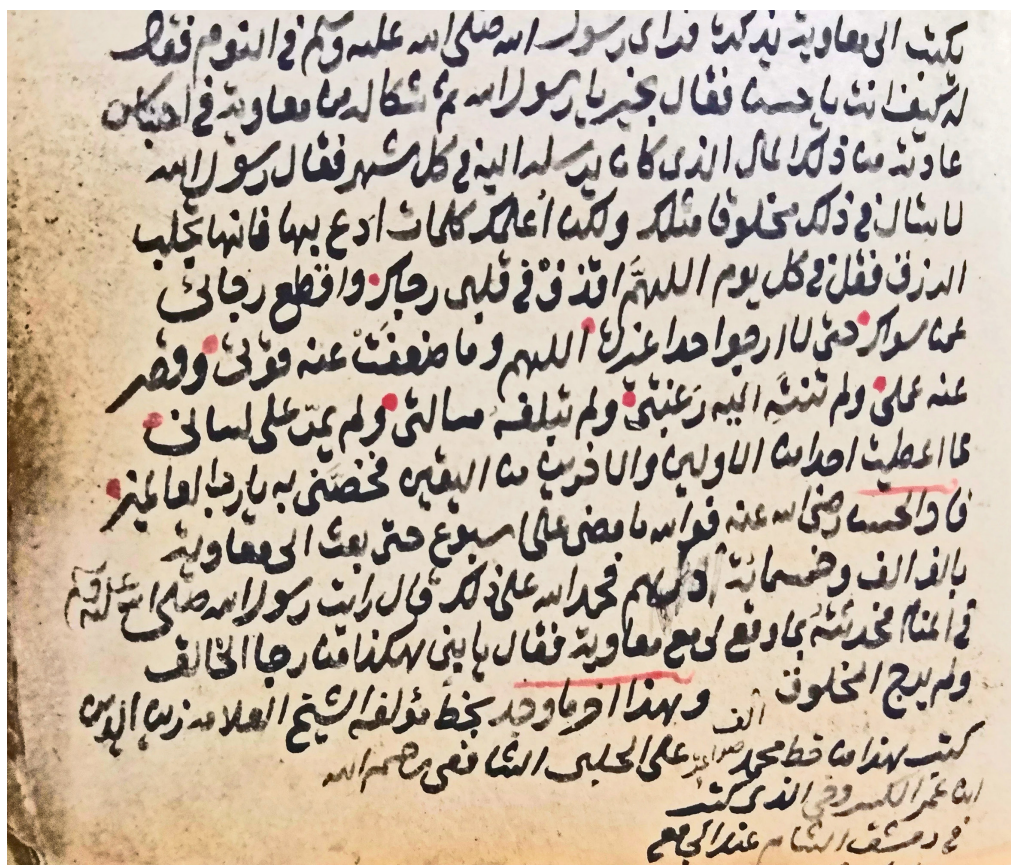 يكتب الى معاوية يذكره فراى رسول الله صلى الله عليه وسلم في النوم فقال
له كيف انت يا حسن فقال بخير يا رسول الله ثم شكا له من معاوية في احتباس
عادته من ذلك المال الذى كان يرسله اليه في كل شهر فقال رسول الله
لا تسال في ذلك مخلوقا مثلك ولكن أعلمك كلمات ادع بها فانها تجلب
الرزق فقل في كل يوم اللهمَّ اقذفْ في قلبى رجاك واقطع رجائى
عن سواك حتى لا ارجوا احدا غيرك اللهم وما ضعفتْ عنه قوتى وقصر
عنه عملى ولم تنته اليه رَغبتى ولم تبلغه مسالتى ولم يمرّ على لسانى
مما اعطيت احدا من الاولين والاخرين من اليقين فخصّنى به يا رب العالمين
قال الحسن رضى الله عنه فوالله ما مضى على اسبوع حتى بعث الى معاوية
بالف الف وخمسمائة الف فحمدت الله على ذلك قال رايت رسول الله صلى الله عليه وسلم
في المنام فحدثتهُ بما وقع لى مع معاوية فقال يا بنى هكذا من رجا الخالق
ولم يرج المخلوق وهذا اخر ما وجد بخط مؤلفه الشيخ العلامه
الف
كتب هذا من خط محمد على الحلبى الشافعى رحمه الله
ابن عمر الذى كتب
في دمشق الشام عند الجامع